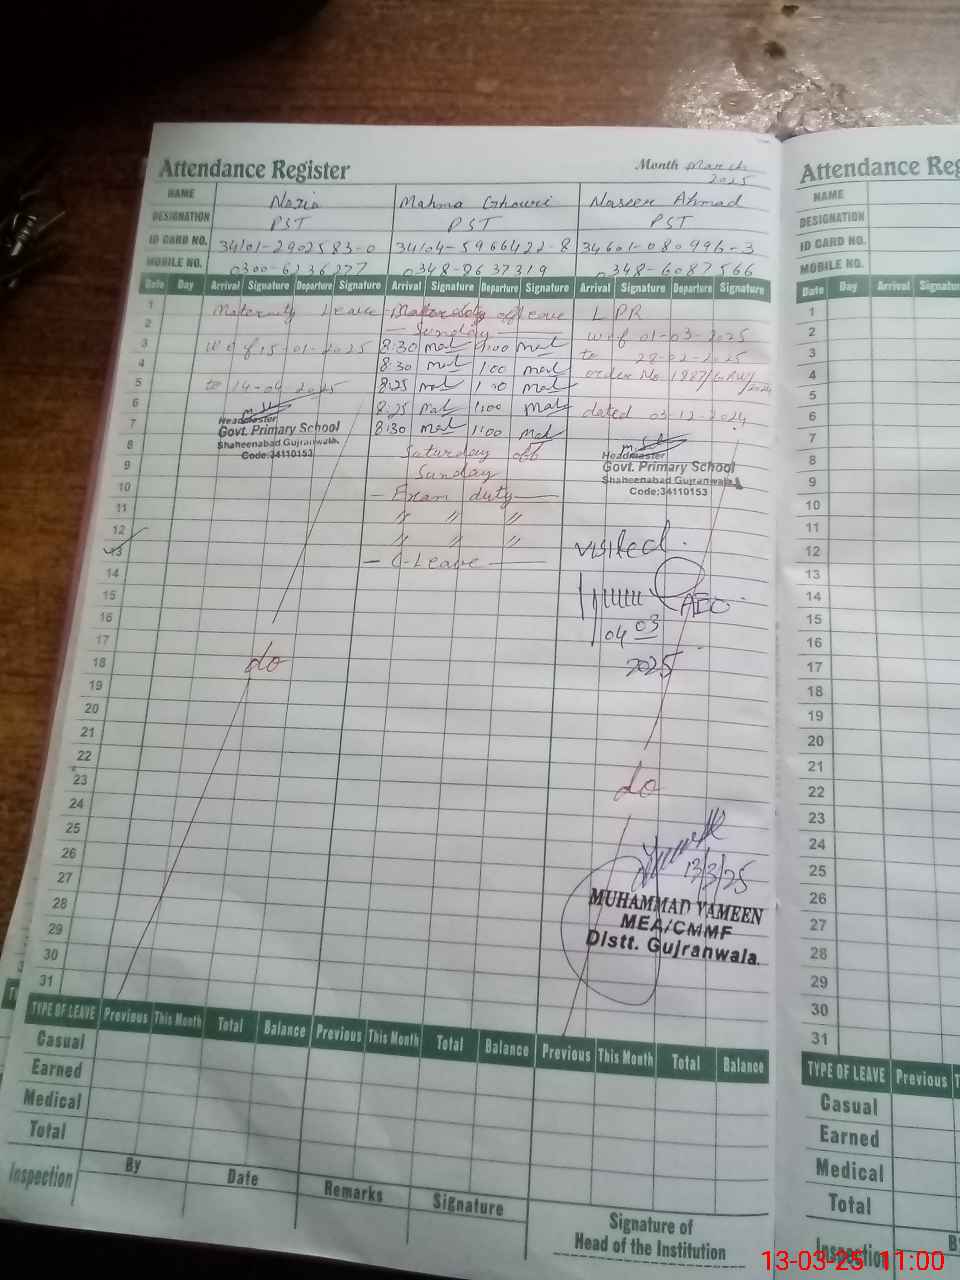 Attendance Register
Month March
2025
NAME Nazia Mahma Ghouri Naseer Ahmad
DESIGNATION PST PST PST
ID CARD NO. 34101-2902583-0 34104-5966422-8 34601-080996-3
MOBILE NO. 0300-6236277 0348-8637319 0348-6087566
Date Day Arrival Signature Departure Signature Arrival Signature Departure Signature Arrival Signature Departure Signature
1 Maternity Leave off Leave LPR
2 — Sunday — w.e.f 01-03-2025
3 w.e.f 15-01-2025 8:30 1:00 to 28-02-2025
4 8:30 1:00 order No 1987/GRW/
5 to 14-04-2025 8:25 1:00
6 8:25 1:00 dated 03-12-2024
7 8:30 1:00
Headmaster
Govt. Primary School
Shaheenabad Gujranwala.
Code:34110153
8 Saturday off
9 Sunday
10 — Exam duty —
11 〃 〃 〃
12 〃 〃 〃
13 — C-Leave —
Headmaster
Govt. Primary School
Shaheenabad Gujranwala
Code:34110153
visited.
AEO
04 03
2025
14
15
16
17
18 do
19
20
21
22
23 do
24
25
26
27
28
29
30
31
13/3/25
MUHAMMAD YAMEEN
MEA/CMMF
Distt. Gujranwala.
TYPE OF LEAVE Previous This Month Total Balance Previous This Month Total Balance Previous This Month Total Balance
Casual
Earned
Medical
Total
Inspection By Date Remarks Signature
Signature of
Head of the Institution
Attendance Reg
NAME
DESIGNATION
ID CARD NO.
MOBILE NO.
Date Day Arrival
1
2
3
4
5
6
7
8
9
10
11
12
13
14
15
16
17
18
19
20
21
22
23
24
25
26
27
28
29
30
31
TYPE OF LEAVE Previous
Casual
Earned
Medical
Total
Inspection
13-03-25 11:00